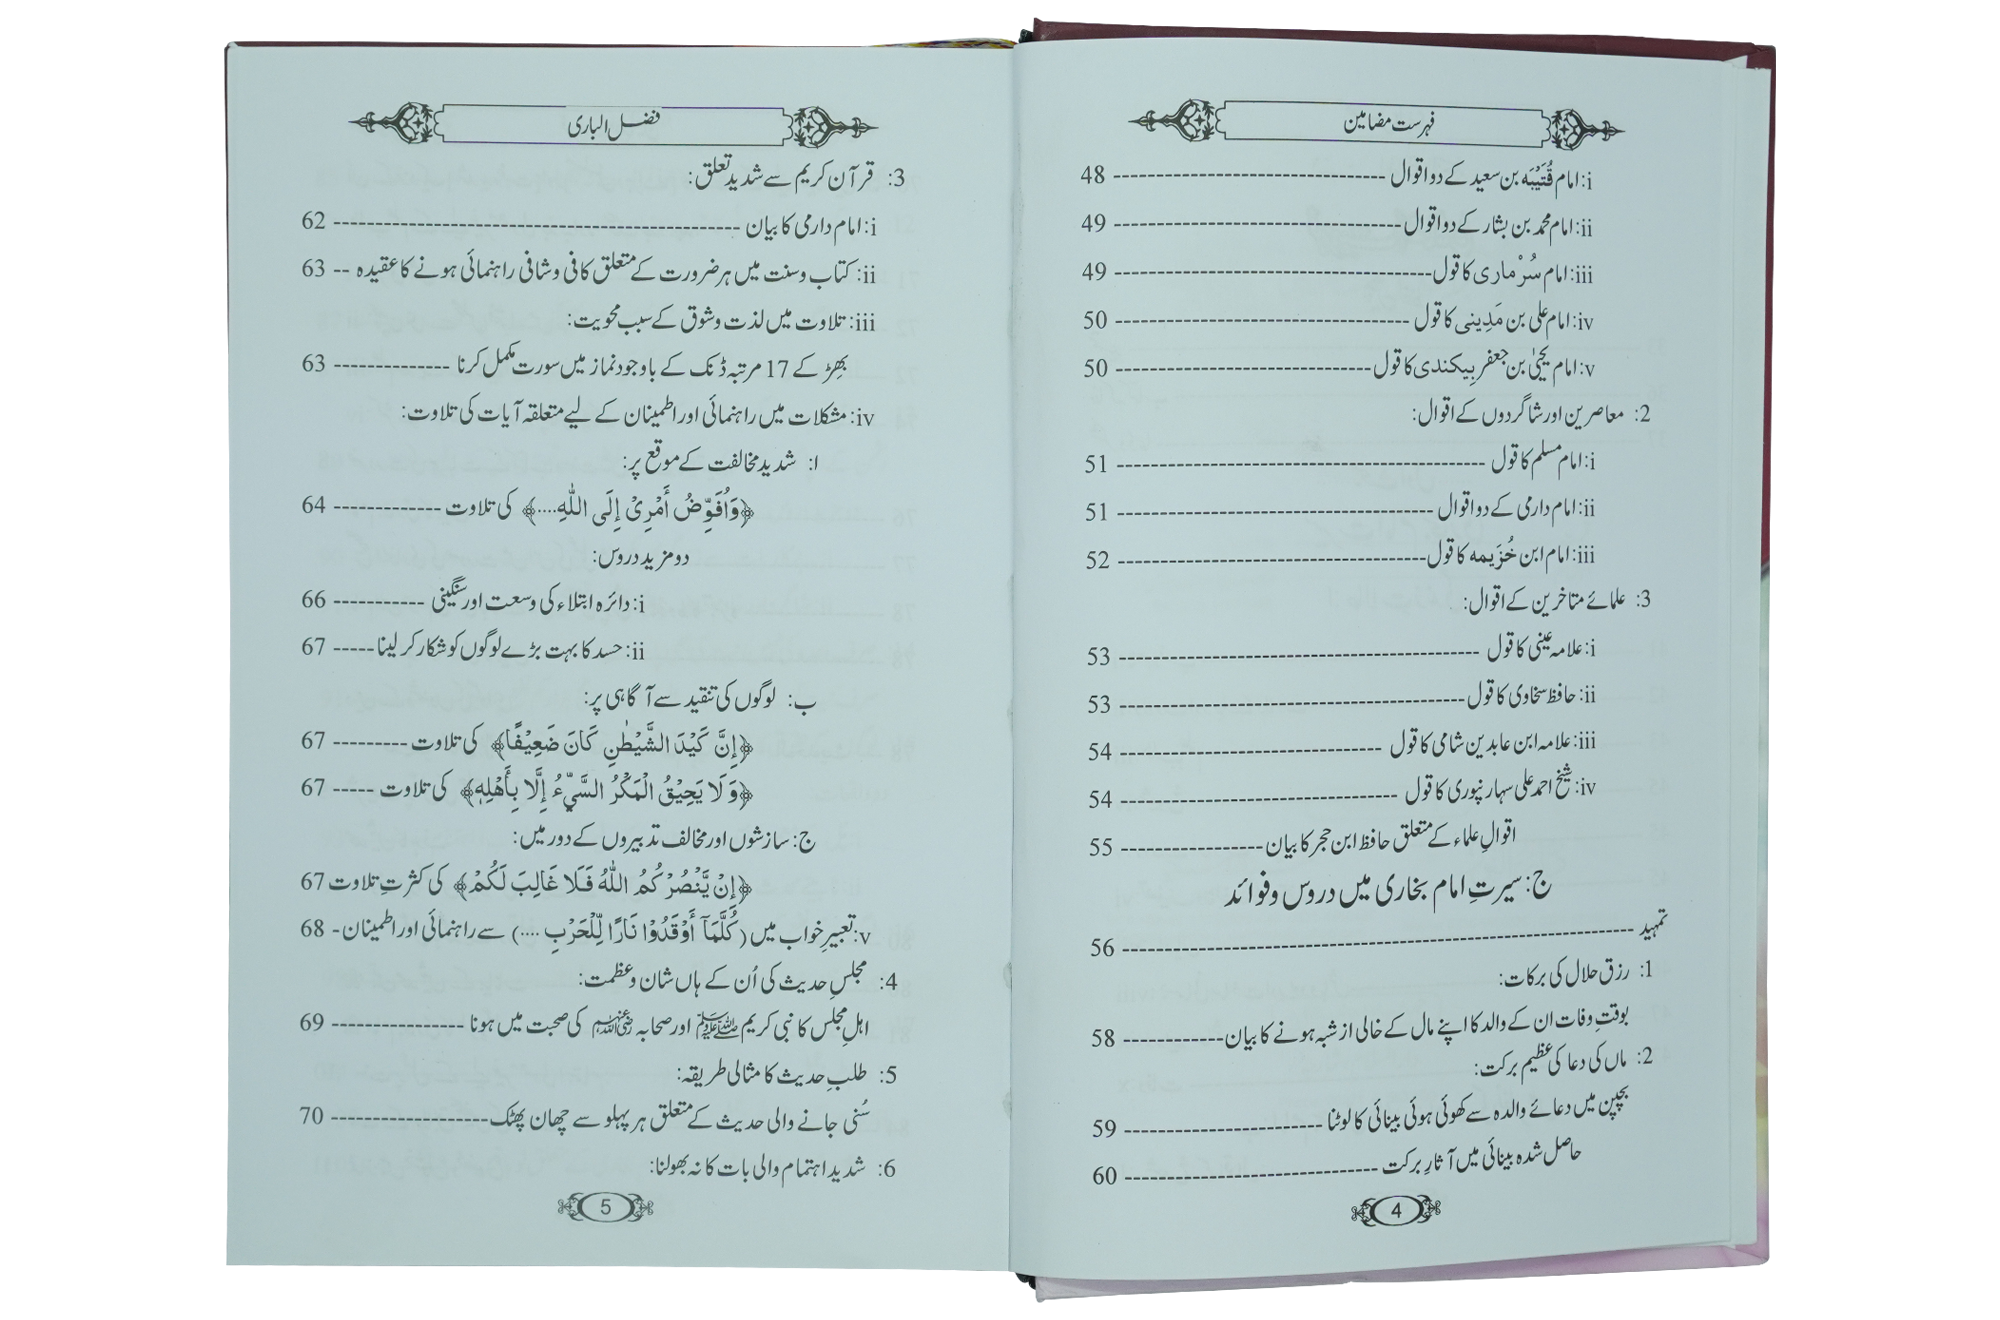 فہرست مضامین
i: امام قُتَیْبَہ بن سعید کے دو اقوال ---------------------------- 48
ii: امام محمد بن بشار کے دو اقوال ---------------------------- 49
iii: امام سُرْماری کا قول-------------------------------- 49
iv: امام علی بن مَدِینی کا قول ------------------------------ 50
v: امام یحییٰ بن جعفر بِیکندی کا قول-------------------------- 50
2: معاصرین اور شاگردوں کے اقوال:
i: امام مسلم کا قول -------------------------------------- 51
ii: امام دارمی کے دو اقوال -------------------------------- 51
iii: امام ابن خُزَیمہ کا قول-------------------------------- 52
3: علمائے متاخرین کے اقوال:
i: علامہ عینی کا قول ------------------------------------- 53
ii: حافظ سخاوی کا قول----------------------------------- 53
iii: علامہ ابن عابدین شامی کا قول --------------------------- 54
iv: شیخ احمد علی سہارنپوری کا قول ---------------------------- 54
اقوالِ علماء کے متعلق حافظ ابن حجر کا بیان --------------- 55
ج: سیرتِ امام بخاری میں دروس و فوائد
تمہید ---------------------------------------------------- 56
1: رزق حلال کی برکات:
بوقتِ وفات ان کے والد کا اپنے مال کے خالی از شبہ ہونے کا بیان------------ 58
2: ماں کی دعا کی عظیم برکت:
بچپن میں دعائے والدہ سے کھوئی ہوئی بینائی کا لوٹنا -------------------- 59
حاصل شدہ بینائی میں آثارِ برکت -------------------------- 60
4
فضل الباری
3: قرآن کریم سے شدید تعلق:
i: امام دارمی کا بیان ----------------------------------------- 62
ii: کتاب و سنت میں ہر ضرورت کے متعلق کافی و شافی راہنمائی ہونے کا عقیدہ -- 63
iii: تلاوت میں لذت و شوق کے سبب محویت:
بِھڑ کے 17 مرتبہ ڈنک کے باوجود نماز میں سورت مکمل کرنا -------------- 63
iv: مشکلات میں راہنمائی اور اطمینان کے لیے متعلقہ آیات کی تلاوت:
ا: شدید مخالفت کے موقع پر:
﴿وَأُفَوِّضُ أَمْرِیْ إِلَی اللّٰہِ....﴾ کی تلاوت ----------- 64
دو مزید دروس:
i: دائرہ ابتلاء کی وسعت اور سنگینی ------------ 66
ii: حسد کا بہت بڑے لوگوں کو شکار کر لینا----- 67
ب: لوگوں کی تنقید سے آگاہی پر:
﴿إِنَّ کَیْدَ الشَّیْطٰنِ کَانَ ضَعِیْفًا﴾ کی تلاوت --------- 67
﴿وَلَا یَحِیْقُ الْمَکْرُ السَّیِّءُ إِلَّا بِأَھْلِہٖ﴾ کی تلاوت ----- 67
ج: سازشوں اور مخالف تدبیروں کے دور میں:
﴿إِنْ یَّنْصُرْکُمُ اللّٰہُ فَلَا غَالِبَ لَکُمْ﴾ کی کثرتِ تلاوت 67
v: تعبیرِ خواب میں (کُلَّمَآ أَوْقَدُوْا نَارًا لِّلْحَرْبِ ....) سے راہنمائی اور اطمینان- 68
4: مجلسِ حدیث کی اُن کے ہاں شان و عظمت:
اہلِ مجلس کا نبی کریم ﷺ اور صحابہ رضی اللہ عنہم کی صحبت میں ہونا ---------------- 69
5: طلبِ حدیث کا مثالی طریقہ:
سُنی جانے والی حدیث کے متعلق ہر پہلو سے چھان پھٹک------------------- 70
6: شدید اہتمام والی بات کا نہ بھولنا:
5